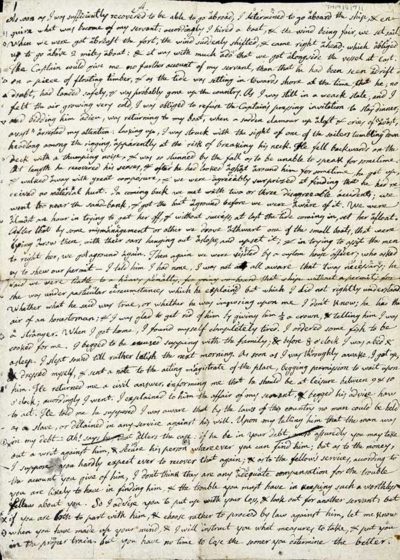 As soon as I was sufficiently recovered to be able to go abroad, I determined to go aboard the ship, & en-
quire what was become of my servant; accordingly I hired a boat, & the wind being fair, we set sail.
When we were got abreast the fort, the wind suddenly shifted, & came right ahead, which obliged
us to go above 2 miles about: & it was with much ado that we got alongside the vessel at last.
The Captain could give me no farther account of my servant, than that he had been seen adrift
on a piece of floating timber, & as the tide was setting in towards shore at the time, that he, no
doubt, had landed safely, & was probably gone up the country. As I was still in a weak state, and I
felt the air growing very cold, I was obliged to refuse the Captain's pressing invitation to stay dinner,
and bidding him adieu, was returning to my boat, when a sudden clamour up aloft & cries of
arrested my attention: looking up, I was struck with the sight of one of the sailors tumbling down
headlong among the rigging, apparently at the risk of breaking his neck. He fell backward on the
deck with a thumping noise, & was so stunned by the fall as to be unable to speak for sometime.
At length he recovered his senses, & after he had looked aghast around him for sometime he got up,
& walked away with great composure, & we were agreeably surprised at finding that he had re-
ceived no material hurt. In coming back we met with two or three disagreeable accidents: we
went too near the sand-bank, & got the boat aground before we were aware of it. We were
almost an hour in trying to get her off, & without success, at last the tide coming in, set her afloat.
After that by some mismanagement or other we drove athwart one of the small boats, that were
lying near there, with their oars hanging out aslope, and upset it; & in trying to assist the men
to right her, we got aground again. Then again we were visited by a custom house officer, who asked
us to shew our permit — I told him I had none, I was not at all aware that it was necessary; he
said we were liable to a heavy penalty, for going on board that ship without a permit, as
she was under particular circumstances, which he explained but which I did not rightly understand.
Whether what he said was true, or whether he was imposing upon me I don't know; he had the
air of an honest man; & I was glad to get rid of him by giving him ½ a crown, & telling him I was
a stranger. When I got home, I found myself completely tired. I ordered some fish to be
cooked for me. I begged to be excused supping with the family, & before 9 o'clock I was abed &
asleep. I slept sound till rather latish the next morning. As soon as I was thoroughly awake, I got up,
& dressed myself, & sent a note to the acting magistrate of the place, begging permission to wait upon
him. He returned me a civil answer, informing me that he should be at leisure between 9 & 10
o'clock; accordingly I went. I explained to him the affair of my servant, & begged his advice how
to act. He told me he supposed I was aware that by the laws of this country no man could be held
as a slave, or detained in any service against his will. Upon my telling him that the man was
in my debt — Ah! says he, that alters the case; if he be in your debt, most assuredly you may take
out a writ against him, & secure his person wherever you can find him; but as to the money I
suppose you hardly expect ever to recover that again; & as to the fellow's service, according to
the account you give of him, I don't think they are any adequate compensation for the trouble
you are likely to have in finding him, & the trouble you must have in keeping such a worthless
fellow about you. So I advise you to put up with your loss, & look out for another servant; but
if you are loth to part with him, & choose rather to proceed by law against him, let me know
when you have made up your mind, & I will instruct you what measures to take, & put you
in the proper train. But you have no time to lose the sooner you determine the better.